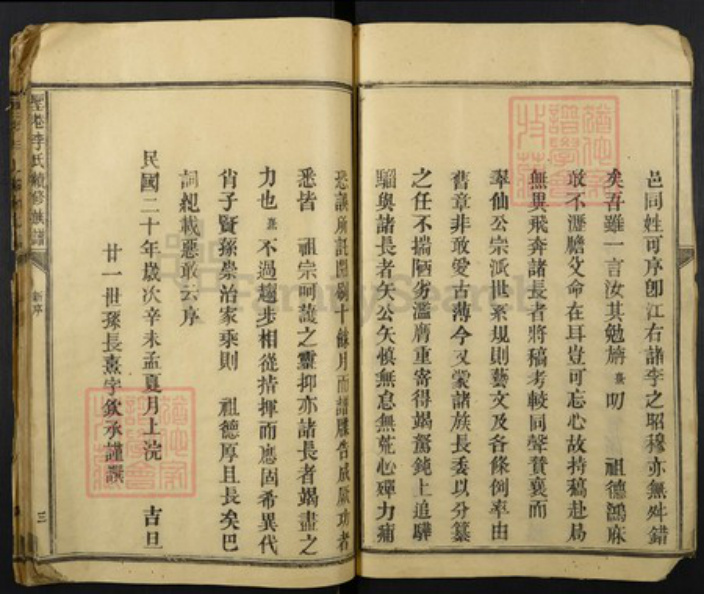 邑同姓可序卽江右諸李之昭穆亦無舛錯
矣吾雖一言汝其勉旃 熹叨 祖德鴻庥
敢不瀝膽父命在耳豈可忘心故持稿赴局
無異飛奔諸長者將稿考較同聲贊襄而
翠仙公宗派世系規則藝文及各條例率由
舊章非敢愛古薄今又蒙諸族長委以分纂
之任不揣陋劣濫膺重寄得竭駑鈍上追驊
騮與諸長者矢公矢慎無怠無荒心殫力痛
恐議所託閱剞十餘月而譜牒告成厥功者
悉皆 祖宗呵護之靈抑亦諸長者竭盡之
力也 熹不過趨步相從指揮而應固希異代
肖子賢孫崇治家乘則 祖德厚且長矣巴
詞紀載惡敢云序
民國二十年歲次辛未孟夏月上浣 吉旦
廿一世孫長熹字欽承謹譔
李氏續修族譜
新序
三
FamilySearch